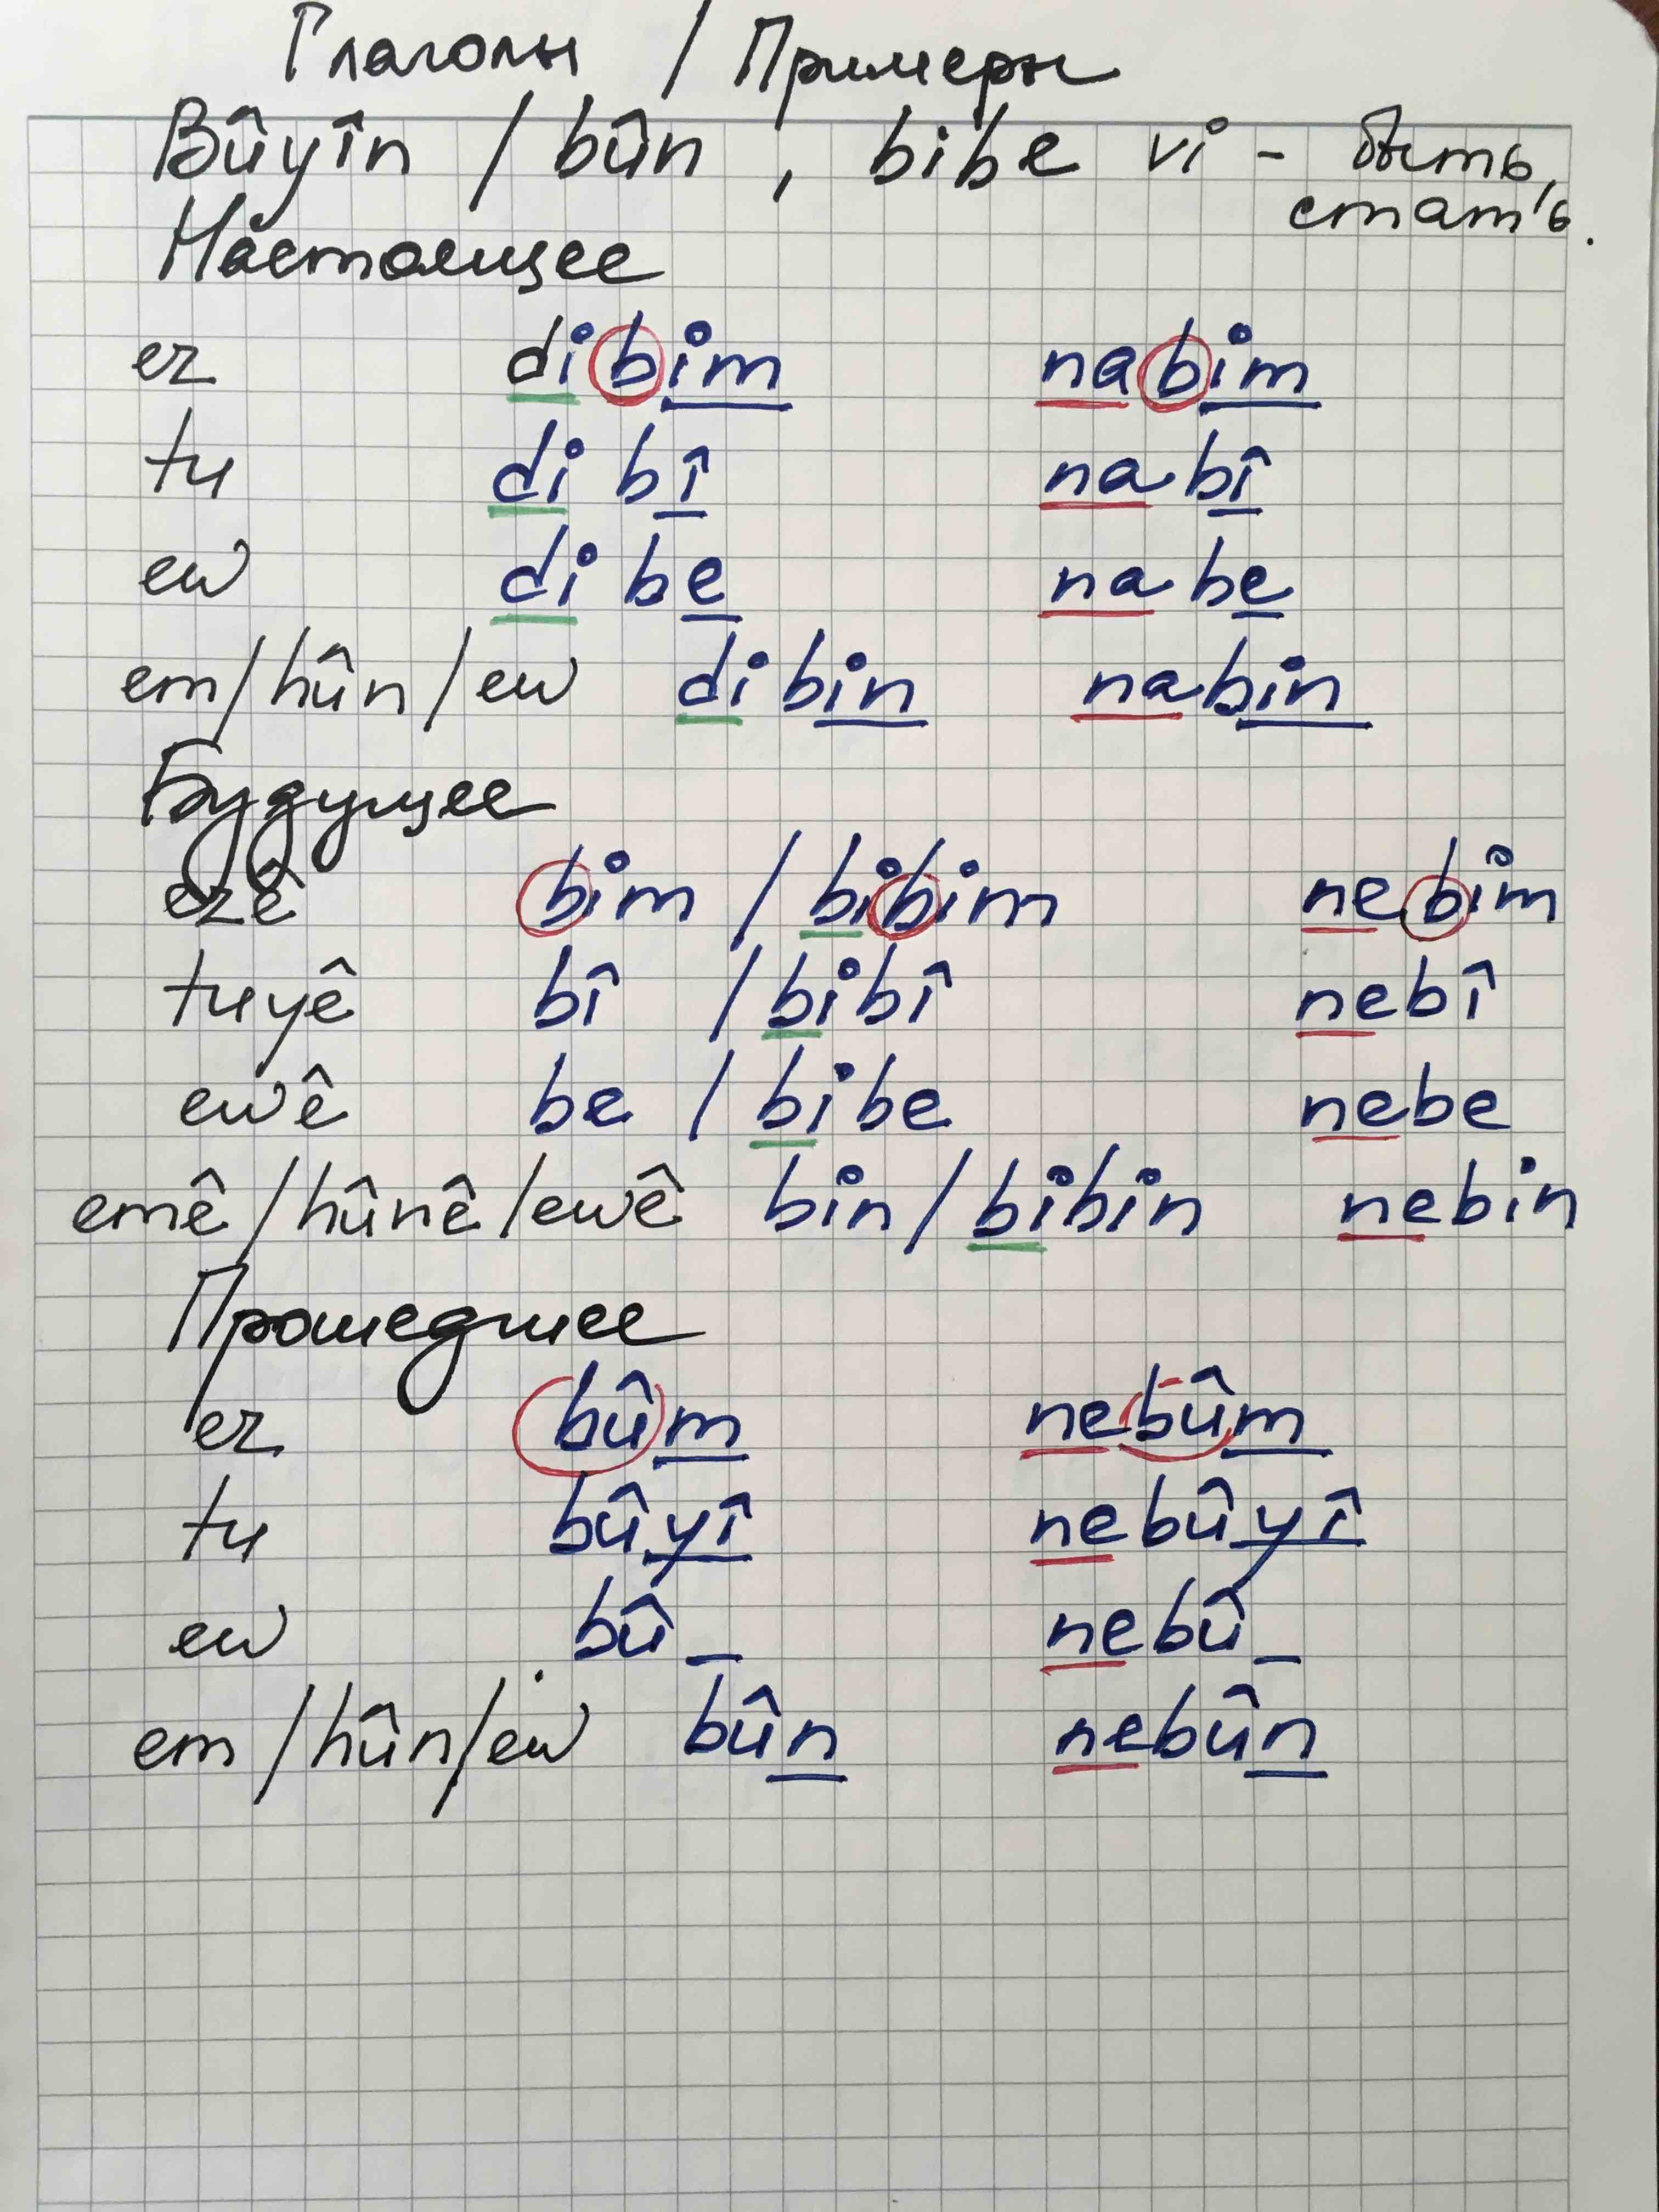 Глаголы / Примеры
Bûyîn / bûn , bibe vi - быть,
стать.
Настоящее
ez dibim nabim
tu dibî nabî
ew dibe nabe
em/hûn/ew dibin nabin
Будущее
ezê bim / bibim nebim
tuyê bî / bibî nebî
ewê be / bibe nebe
emê/hûnê/ewê bin/bibin nebin
Прошедшее
ez bûm nebûm
tu bûyî nebûyî
ew bû_ nebû_
em/hûn/ew bûn nebûn